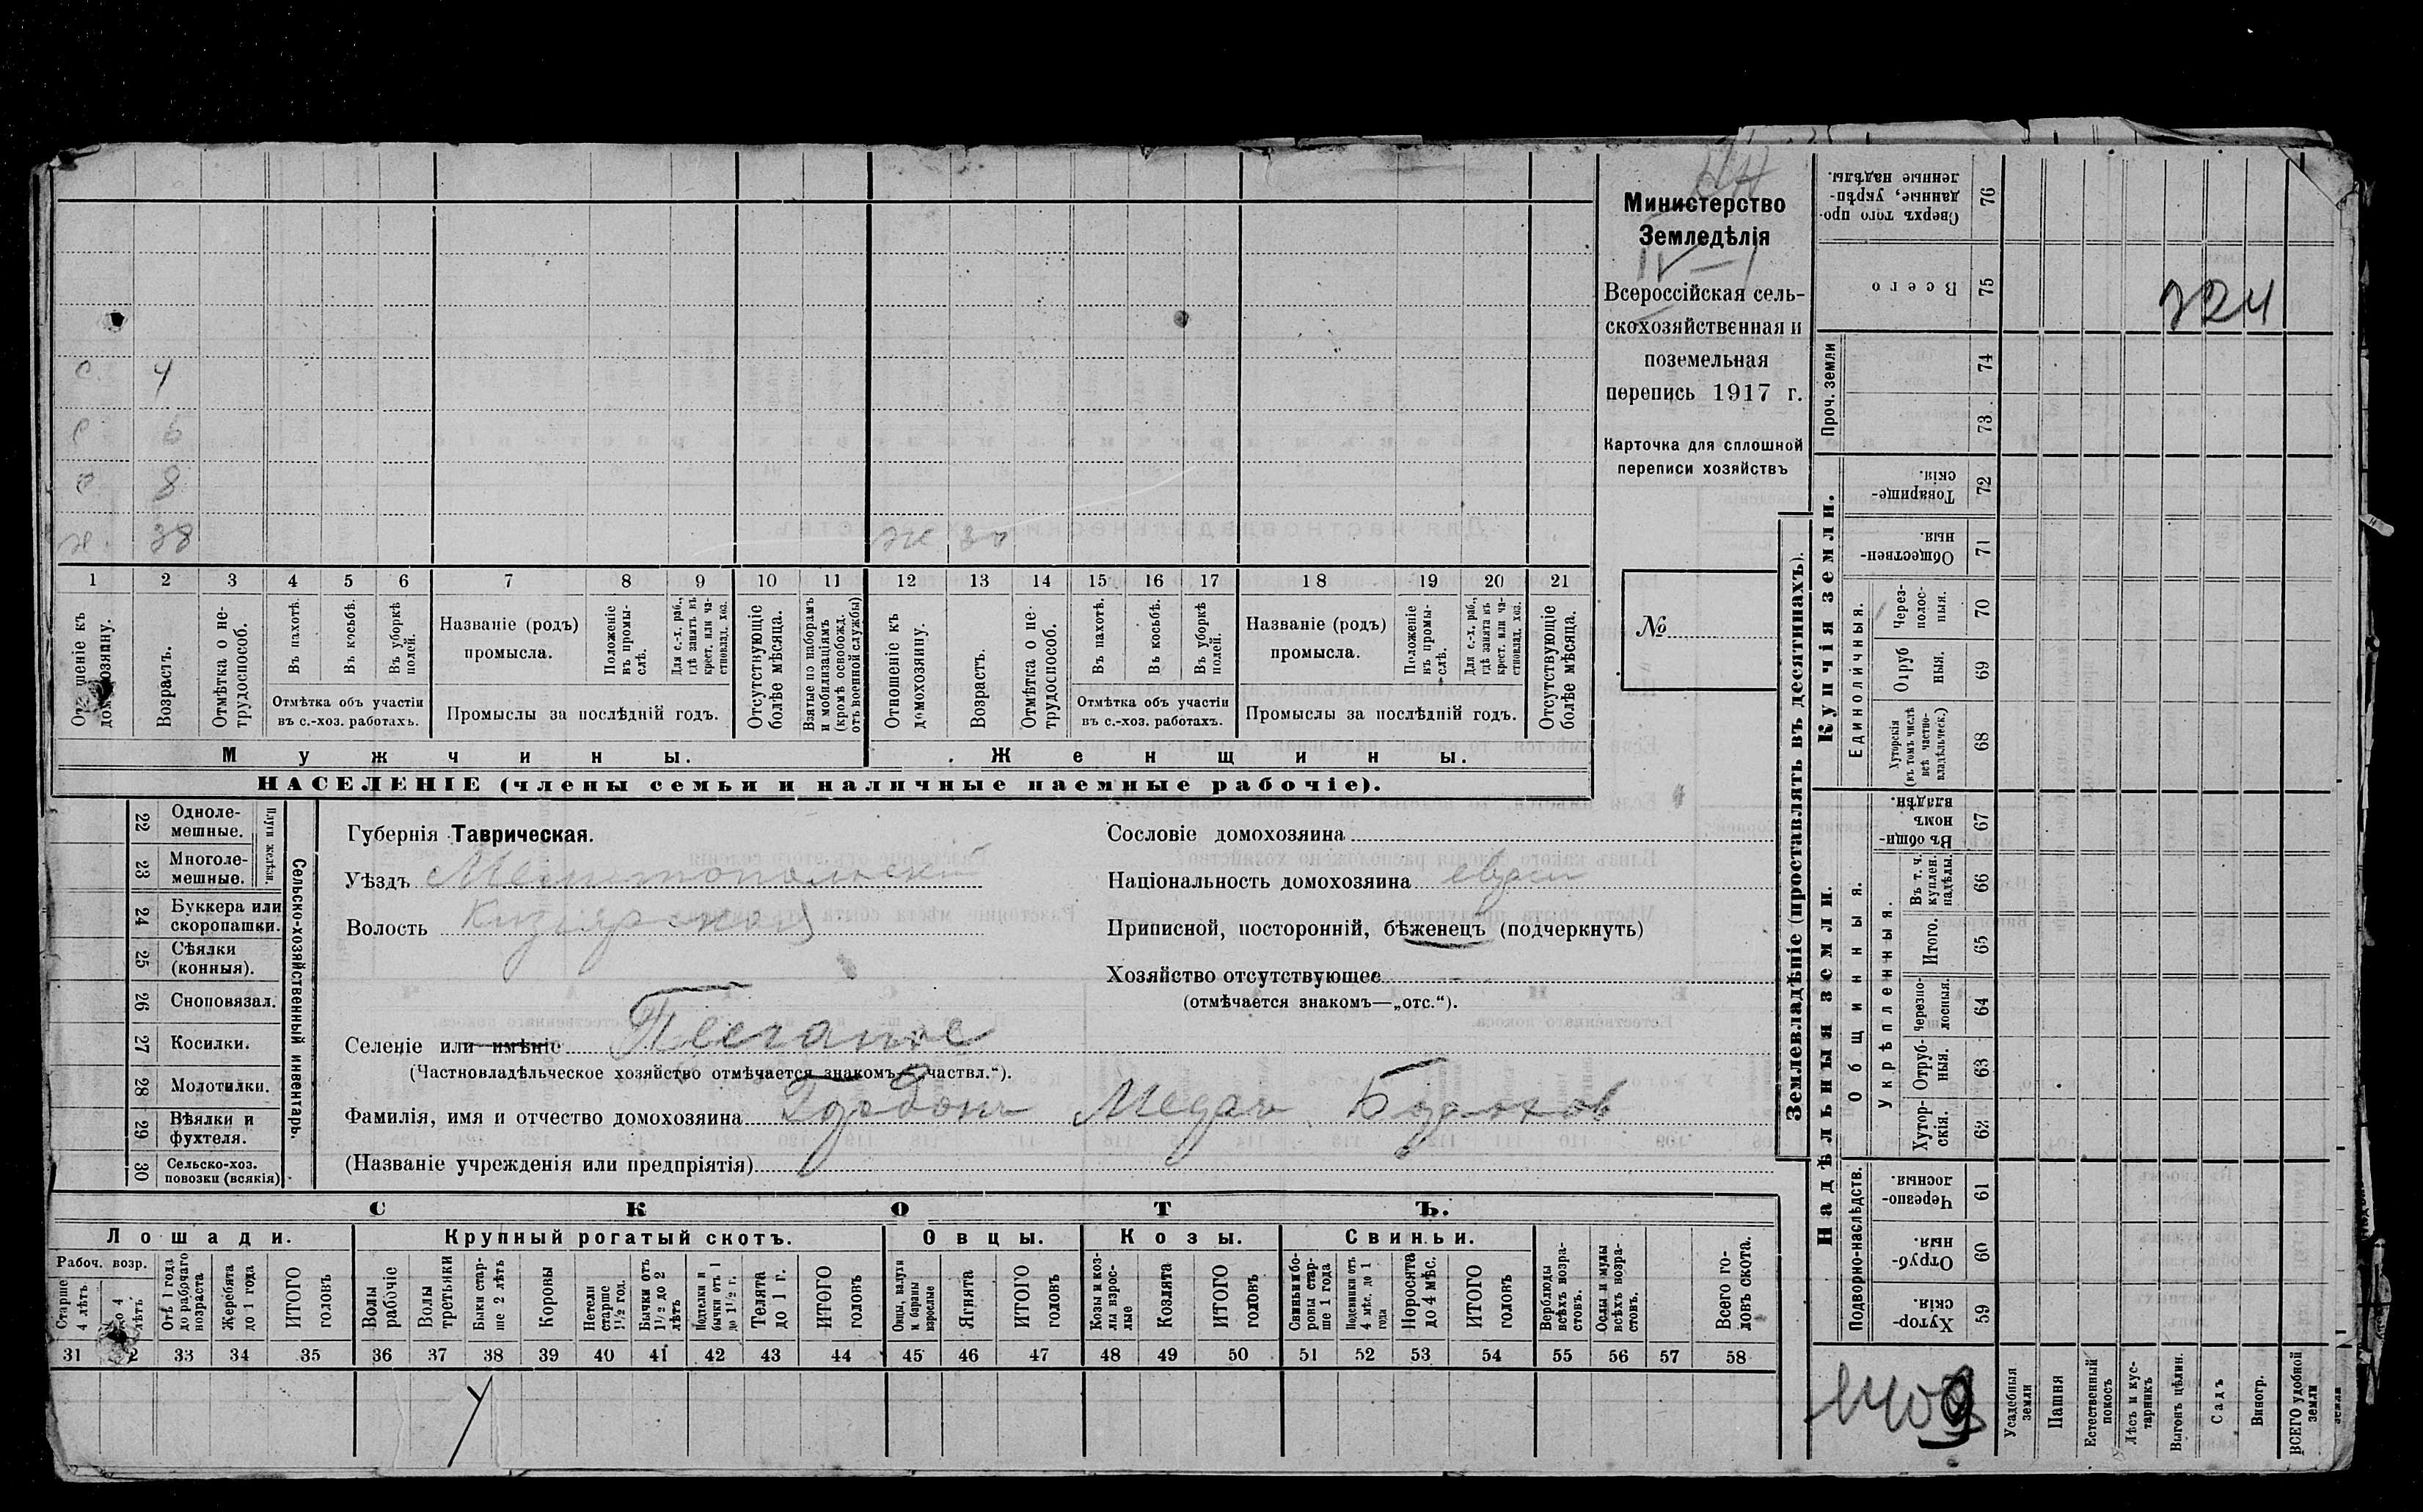 Министерство
Земледѣлія
Всероссійская сель-
скохозяйственная и
поземельная
перепись 1917 г.
Карточка для сплошной
переписи хозяйствъ
№
с. 4
с 6
с 8
х. 38 ж 30
1 2 3 4 5 6 7 8 9 10 11 12 13 14 15 16 17 18 19 20 21
Отношеніе къ домохозяину.
Возрастъ.
Отмѣтка о не-трудоспособ.
Въ пахотѣ.
Въ косьбѣ.
Въ уборкѣ полей.
Отмѣтка объ участіи
въ с.-хоз. работахъ.
Названіе (родъ)
промысла.
Положеніе въ промы-слѣ.
Для с.-х. раб., гдѣ занятъ въ крест. или ча-стновлад. хоз.
Промыслы за послѣдній годъ.
Отсутствующіе болѣе мѣсяца.
Взятые по наборамъ и мобилизаціямъ (кромѣ освобожд. отъ военной службы)
Отношеніе къ домохозяину.
Возрастъ.
Отмѣтка о не-трудоспособ.
Въ пахотѣ.
Въ косьбѣ.
Въ уборкѣ полей.
Отмѣтка объ участіи
въ с.-хоз. работахъ.
Названіе (родъ)
промысла.
Положеніе въ промы-слѣ.
Для с.-х. раб., гдѣ занята въ крест. или ча-стновлад. хоз.
Промыслы за послѣдній годъ.
Отсутствующіе болѣе мѣсяца.
Мужчины. Женщины.
НАСЕЛЕНІЕ (члены семьи и наличные наемные рабочіе).
22 Одноле-мешные.
23 Многоле-мешные.
Плуги желѣзн.
24 Буккера или скоропашки.
25 Сѣялки (конныя).
26 Сноповязал.
27 Косилки.
28 Молотилки.
29 Вѣялки и фухтеля.
30 Сельско-хоз. повозки (всякія)
Сельско-хозяйственный инвентарь.
Губернія Таврическая.
Уѣздъ Мелитопольскій
Волость Кизіярская
Селеніе или имѣніе Песчаное
(Частновладѣльческое хозяйство отмѣчается знакомъ „частвл.“).
Фамилія, имя и отчество домохозяина Гордонъ
(Названіе учрежденія или предпріятія)
Сословіе домохозяина
Національность домохозяина еврей
Приписной, посторонній, бѣженецъ (подчеркнуть)
Хозяйство отсутствующее -
(отмѣчается знакомъ—„отс.“).
СКОТЪ.
Лошади. Крупный рогатый скотъ. Овцы. Козы. Свиньи.
Рабоч. возр.
Старше 4 лѣтъ
До 4 лѣтъ
Отъ 1 года до рабочаго возраста
Жеребята до 1 года
ИТОГО головъ
Волы рабочіе
Волы третьяки
Быки стар-ше 2 лѣтъ
Коровы
Нетели старше 1½ год.
Бычки отъ 1½ до 2 лѣтъ
Подтелки и бычки отъ 1 до 1½ г.
Телята до 1 г.
ИТОГО головъ
Овцы, валухи и бараны взрослые
Ягнята
ИТОГО головъ
Козы и коз-лы взрос-лые
Козлята
ИТОГО головъ
Свиньи и бо-ровы стар-ше 1 года
Подсвинки отъ 4 мѣс. до 1 года
Поросята до 4 мѣс.
ИТОГО головъ
Верблюды всѣхъ возра-стовъ.
Ослы и мулы всѣхъ возра-стовъ.
Всего го-ловъ скота.
31 2 33 34 35 36 37 38 39 40 41 42 43 44 45 46 47 48 49 50 51 52 53 54 55 56 57 58
Землевладѣніе (проставлять въ десятинахъ).
Сверхъ того про-данные, укрѣп-ленные надѣлы. 76
Всего 75
724
Проч. земли 74
73
Купчія земли.
Товарище-скія. 72
Обществен-ныя. 71
Единоличныя.
Через-полос-ныя. 70
Отруб-ныя. 69
Хуторскія (въ томъ числѣ всѣ частно-владѣльческ.) 68
Надѣльныя земли.
Общинныя.
Въ общин-номъ владѣн. 67
Укрѣпленныя.
Въ т. ч. куплен. надѣлы. 66
Итого. 65
Черезпо-лосныя. 64
Отруб-ныя. 63
Хутор-скія. 62
Подворно-наслѣдств.
Черезпо-лосныя. 61
Отруб-ныя. 60
Хутор-скія. 59
Усадебныя земли
Пашня
Естественный покосъ
Лѣсъ и кус-тарникъ
Выгонъ цѣлин.
Садъ
Виногр.
ВСЕГО удобной земли